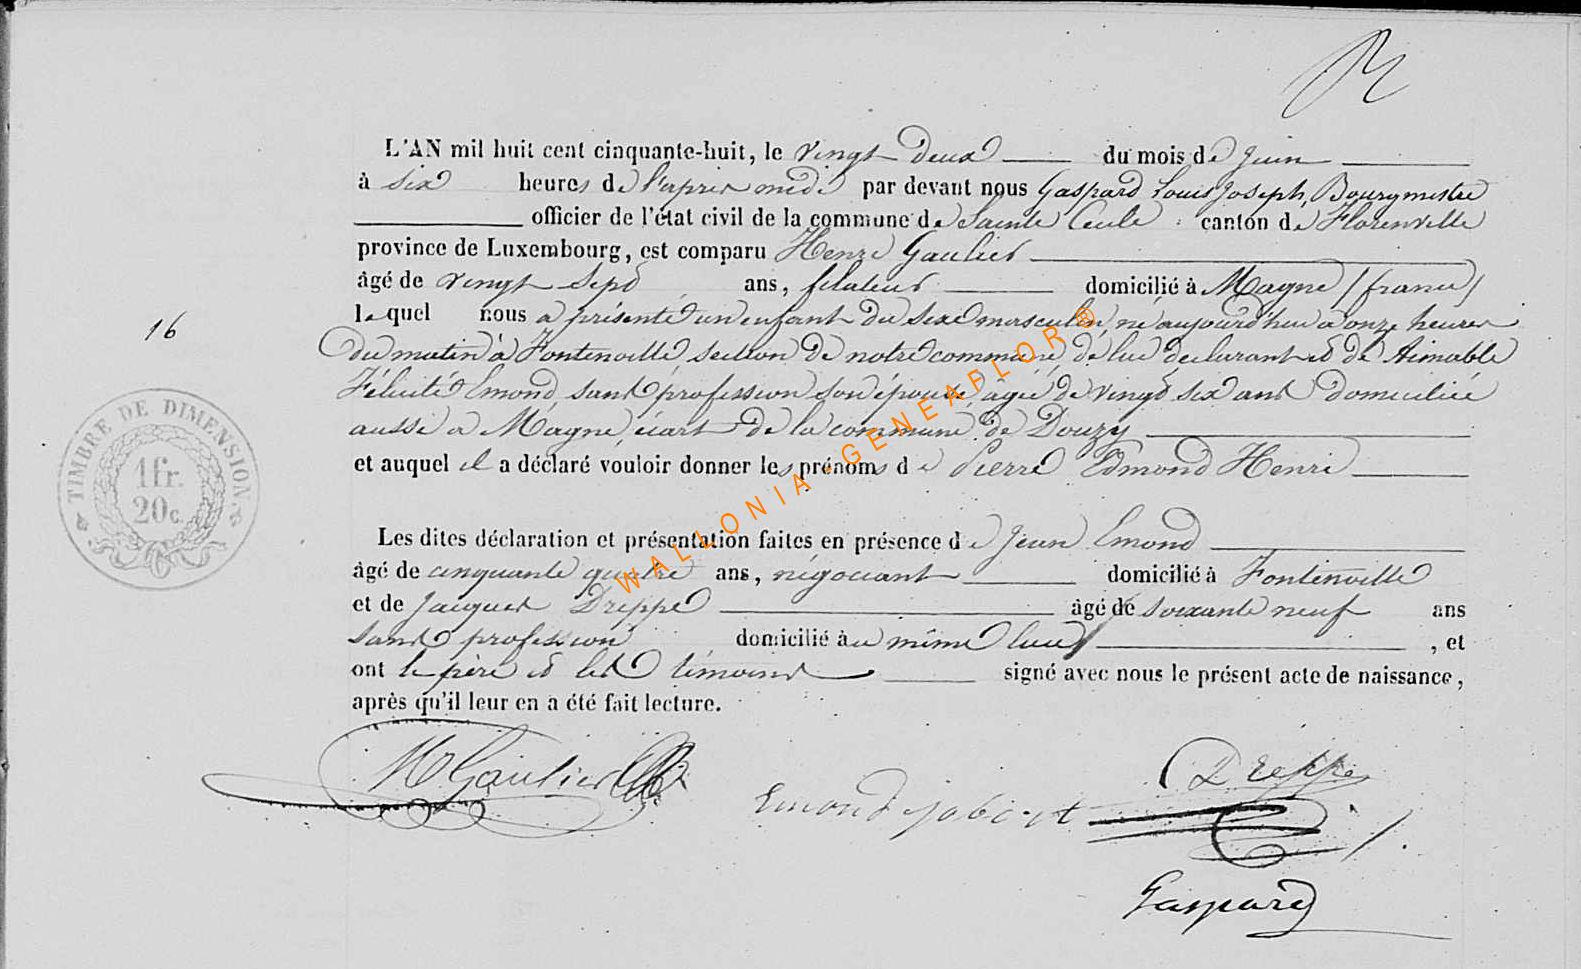 L'AN mil huit cent cinquante-huit, le vingt deux du mois de Juin
à six heures de l'après midi par devant nous Gaspard Louis Joseph, Bourgmestre
officier de l'état civil de la commune de Sainte Cecile canton de Florenville
province de Luxembourg, est comparu Henri Gaulier
âgé de vingt sept ans, filateur domicilié à Magne (france)
lequel nous a présenté un enfant du sexe masculin, né aujourd'hui à onze heures
16
du matin à Fontenoille section de notre commune, de lui déclarant et de Aimable
Félicité Emond sans profession son épouse, âgée de vingt six ans domiciliée
aussi à Magne, écart de la commune de Douzy
et auquel il a déclaré vouloir donner les prénoms de Pierre Edmond Henri
TIMBRE DE DIMENSION.
1 fr.
20 c.
Les dites déclaration et présentation faites en présence de Jean Emond
âgé de cinquante quatre ans, négociant domicilié à Fontenoille
et de Jacques Dreppe âgé de soixante neuf ans
sans profession domicilié au même lieu, et
ont le père et les témoins signé avec nous le présent acte de naissance,
après qu'il leur en a été fait lecture.
Gaulier
Dreppe
Emond jobart
Gaspard
WALLONIA-GENEAFLOR®